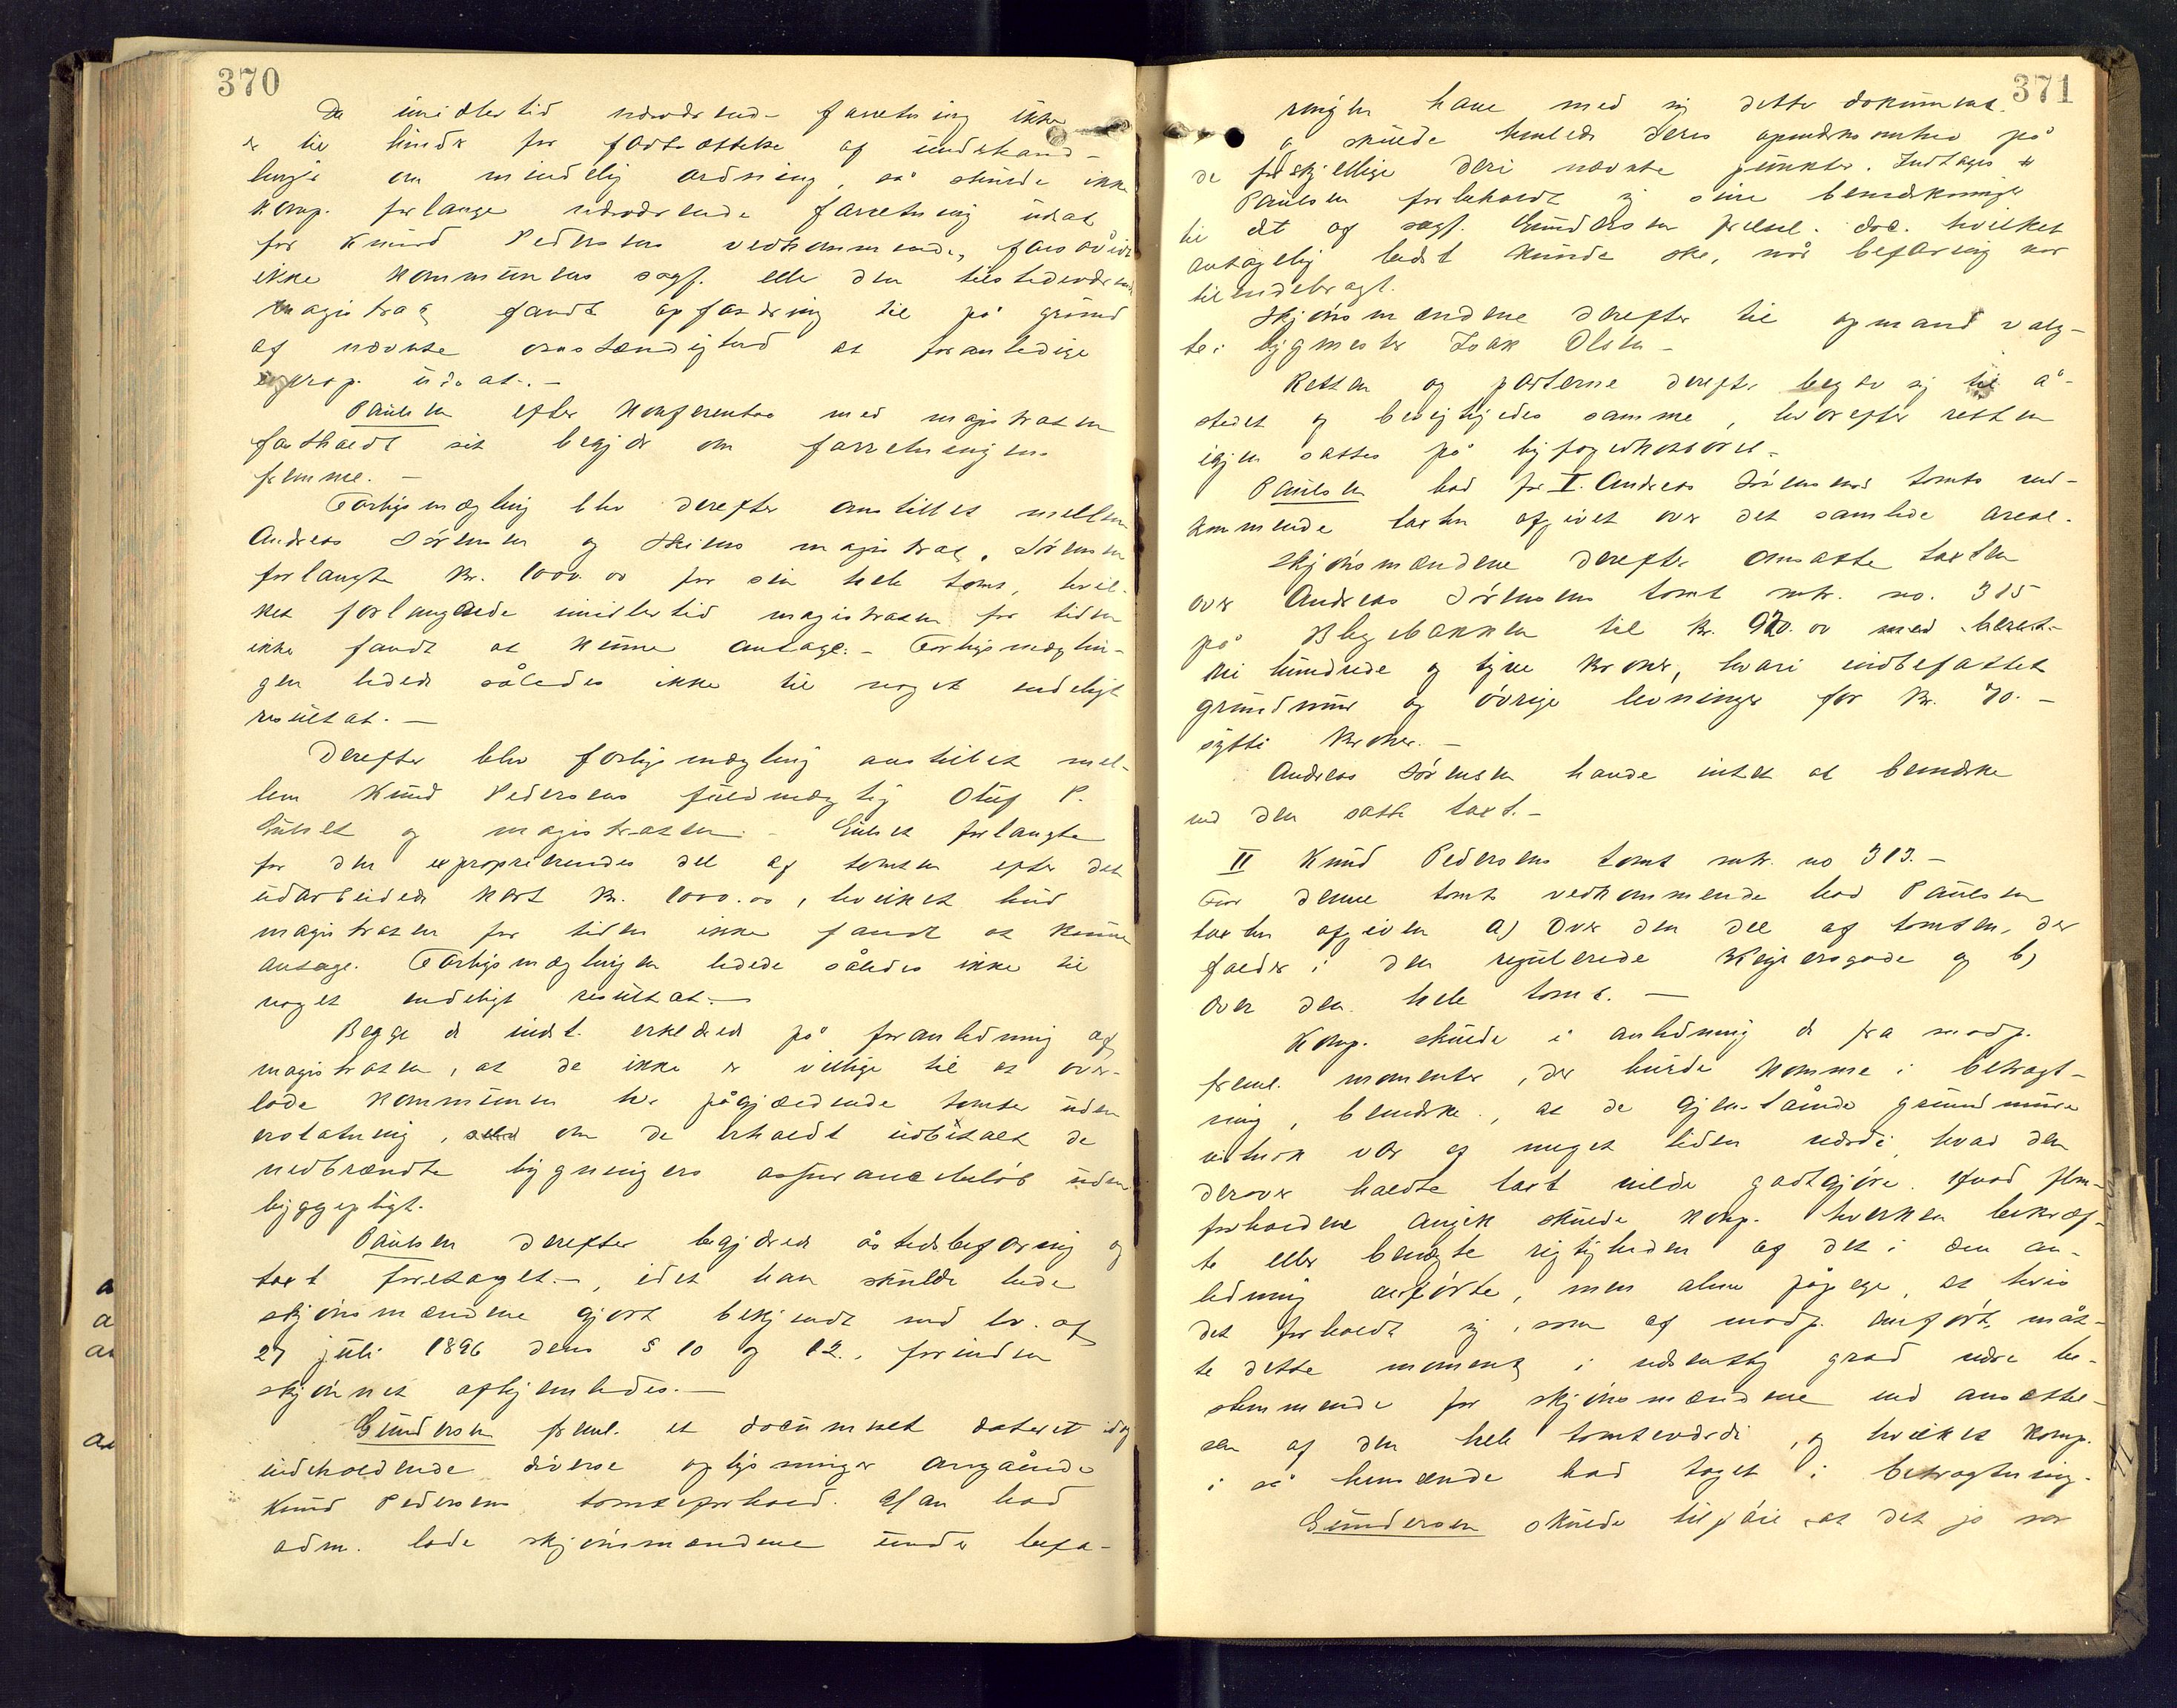 370
Da imidlertid nærværende forretning ikke
er til hinder for fortsættelse af underhand-
linger om mindelig ordning, så skulde ikke
komp. forlange nærværende forretning udsat
for Knud Pedersens vedkommende, forsåvidt
ikke kommunens sagf. eller den tilstedeværende
magistrat fandt opfordring til på grund
af nævnte omstændighed at foranledige
exprop. udsat. -
Paulsen efter konferentse med magistraten
fastholdt sit begjær om forretningens
fremme. -
Forligsmægling blev derefter anstillet mellem
Andreas Sørensen og Skiens magistrat. Sørensen
forlangte kr. 1000.00 for sin hele tomt, hvil-
ket forlangende imidlertid magistraten for tiden
ikke fandt at kunne antage. - Forligsmæglin-
gen ledede således ikke til noget endeligt
resultat. -
Derefter blev forligsmægling anstillet mel-
lem Knud Pedersens fuldmægtig Oluf P.
Gulset og magistraten. - Gulset forlangte
for den exproprierendes del af tomten efter det
udarbeidede kart kr. 1000.00, hvilket bud
magistraten for tiden ikke fandt at kunne
antage. Forligsmæglingen ledede således ikke til
noget endeligt resultat. -
Begge de indst. erklærede på foranledning af
magistraten, at de ikke er villige til at over-
lade kommunen de pågjældende tomter uden
erstatning, om de erholdt udbetalt de
nedbrændte bygningers assurancebeløb uden
byggepligt.
Paulsen derefter begjærede åstedsbefaring og
taxt foretaget. -, idet han skulde bede
skjønsmændene gjort bekjendt med lov. af
27 juli 1896 dens § 10 og 12., forinden
skjønnet afhjemledes. -
Gundersen freml. et document dateret idag
indeholdende diverse oplysninger angående
Knud Pedersens tomteforhold. Han bad
adm. lade skjønsmændene under befa-
371
ringen have med sig dette dokument
og skulde henlede deres opmerksomhed på
de forskjellige deri nævnte punkter. Indtages
Paulsen forbeholdt sig sine bemærkninger
til det af sagf. Gundersen freml. doc. hvilket
antagelig bedst kunde ske, når befaring var
tilendebragt.
Skjønsmændene derefter til opmand valg-
te: bygmester Isak Olsen -
Retten og parterne derefter begav sig til å-
stedet og besigtigedes samme, hvorefter retten
igjen sattes på byfogedkontoret. -
Paulsen bad for I. Andreas Sørensens tomts ved-
kommende taxten afgivet over det samlede areal.
Skjønsmændene derefter ansatte taxten
over Andreas Sørensens tomt mtr. no. 315
på Blegebakken til kr. 920.00
ni hundrede og tyve kroner, hvori indbefattet
grundmur og øvrige levninger for kr. 70. -
sytti kroner. -
Andreas Sørensen havde intet at bemærke
ved den satte taxt. -
II Knud Pedersens tomt mtr. no 313. -
For denne tomts vedkommende bad Paulsen
taxten afgiven a) over den del af tomten, der
falder i den regulerede Keysersgade og b)
over den hele tomt. -
Komp. skulde i anledning de fra modp.
freml. momenter, der burde komme i betragt-
ning, bemærke, at de gjenstående grundmure
vistnok var af meget liden værdi, hvad den
derover holdte taxt vilde godtgjøre. Hvad
forholdene angik skulde komp. hverken bekræf-
te eller benægte rigtigheden af det i den an-
ledning anførte, men alene påpege, at hvis
det forholdt sig, som af modp. anført, måt-
te dette moment i væsentlig grad være be-
stemmende for skjønsmændene ved ansættel-
sen af den hele tomteværdi, og hvilket komp.
i så henseende bad taget i betragtning.
Gundersen skulde tilføie, at det jo var